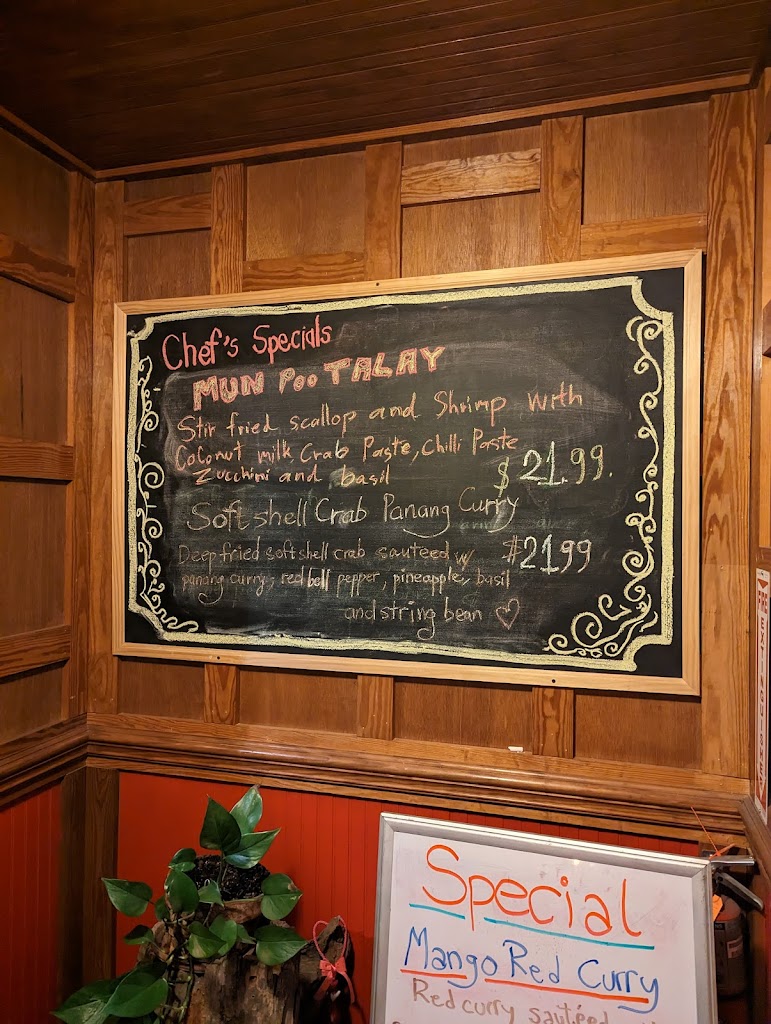 Chef's Specials
MUN POO TALAY
Stir fried scallop and Shrimp with
Coconut milk Crab Paste, Chilli Paste
Zucchini and basil $21.99.
Soft shell Crab Panang Curry
Deep fried soft shell crab sauteed w/ $21.99
panang curry, red bell pepper, pineapple, basil
and string bean
Special
Mango Red Curry
Red curry sautéed